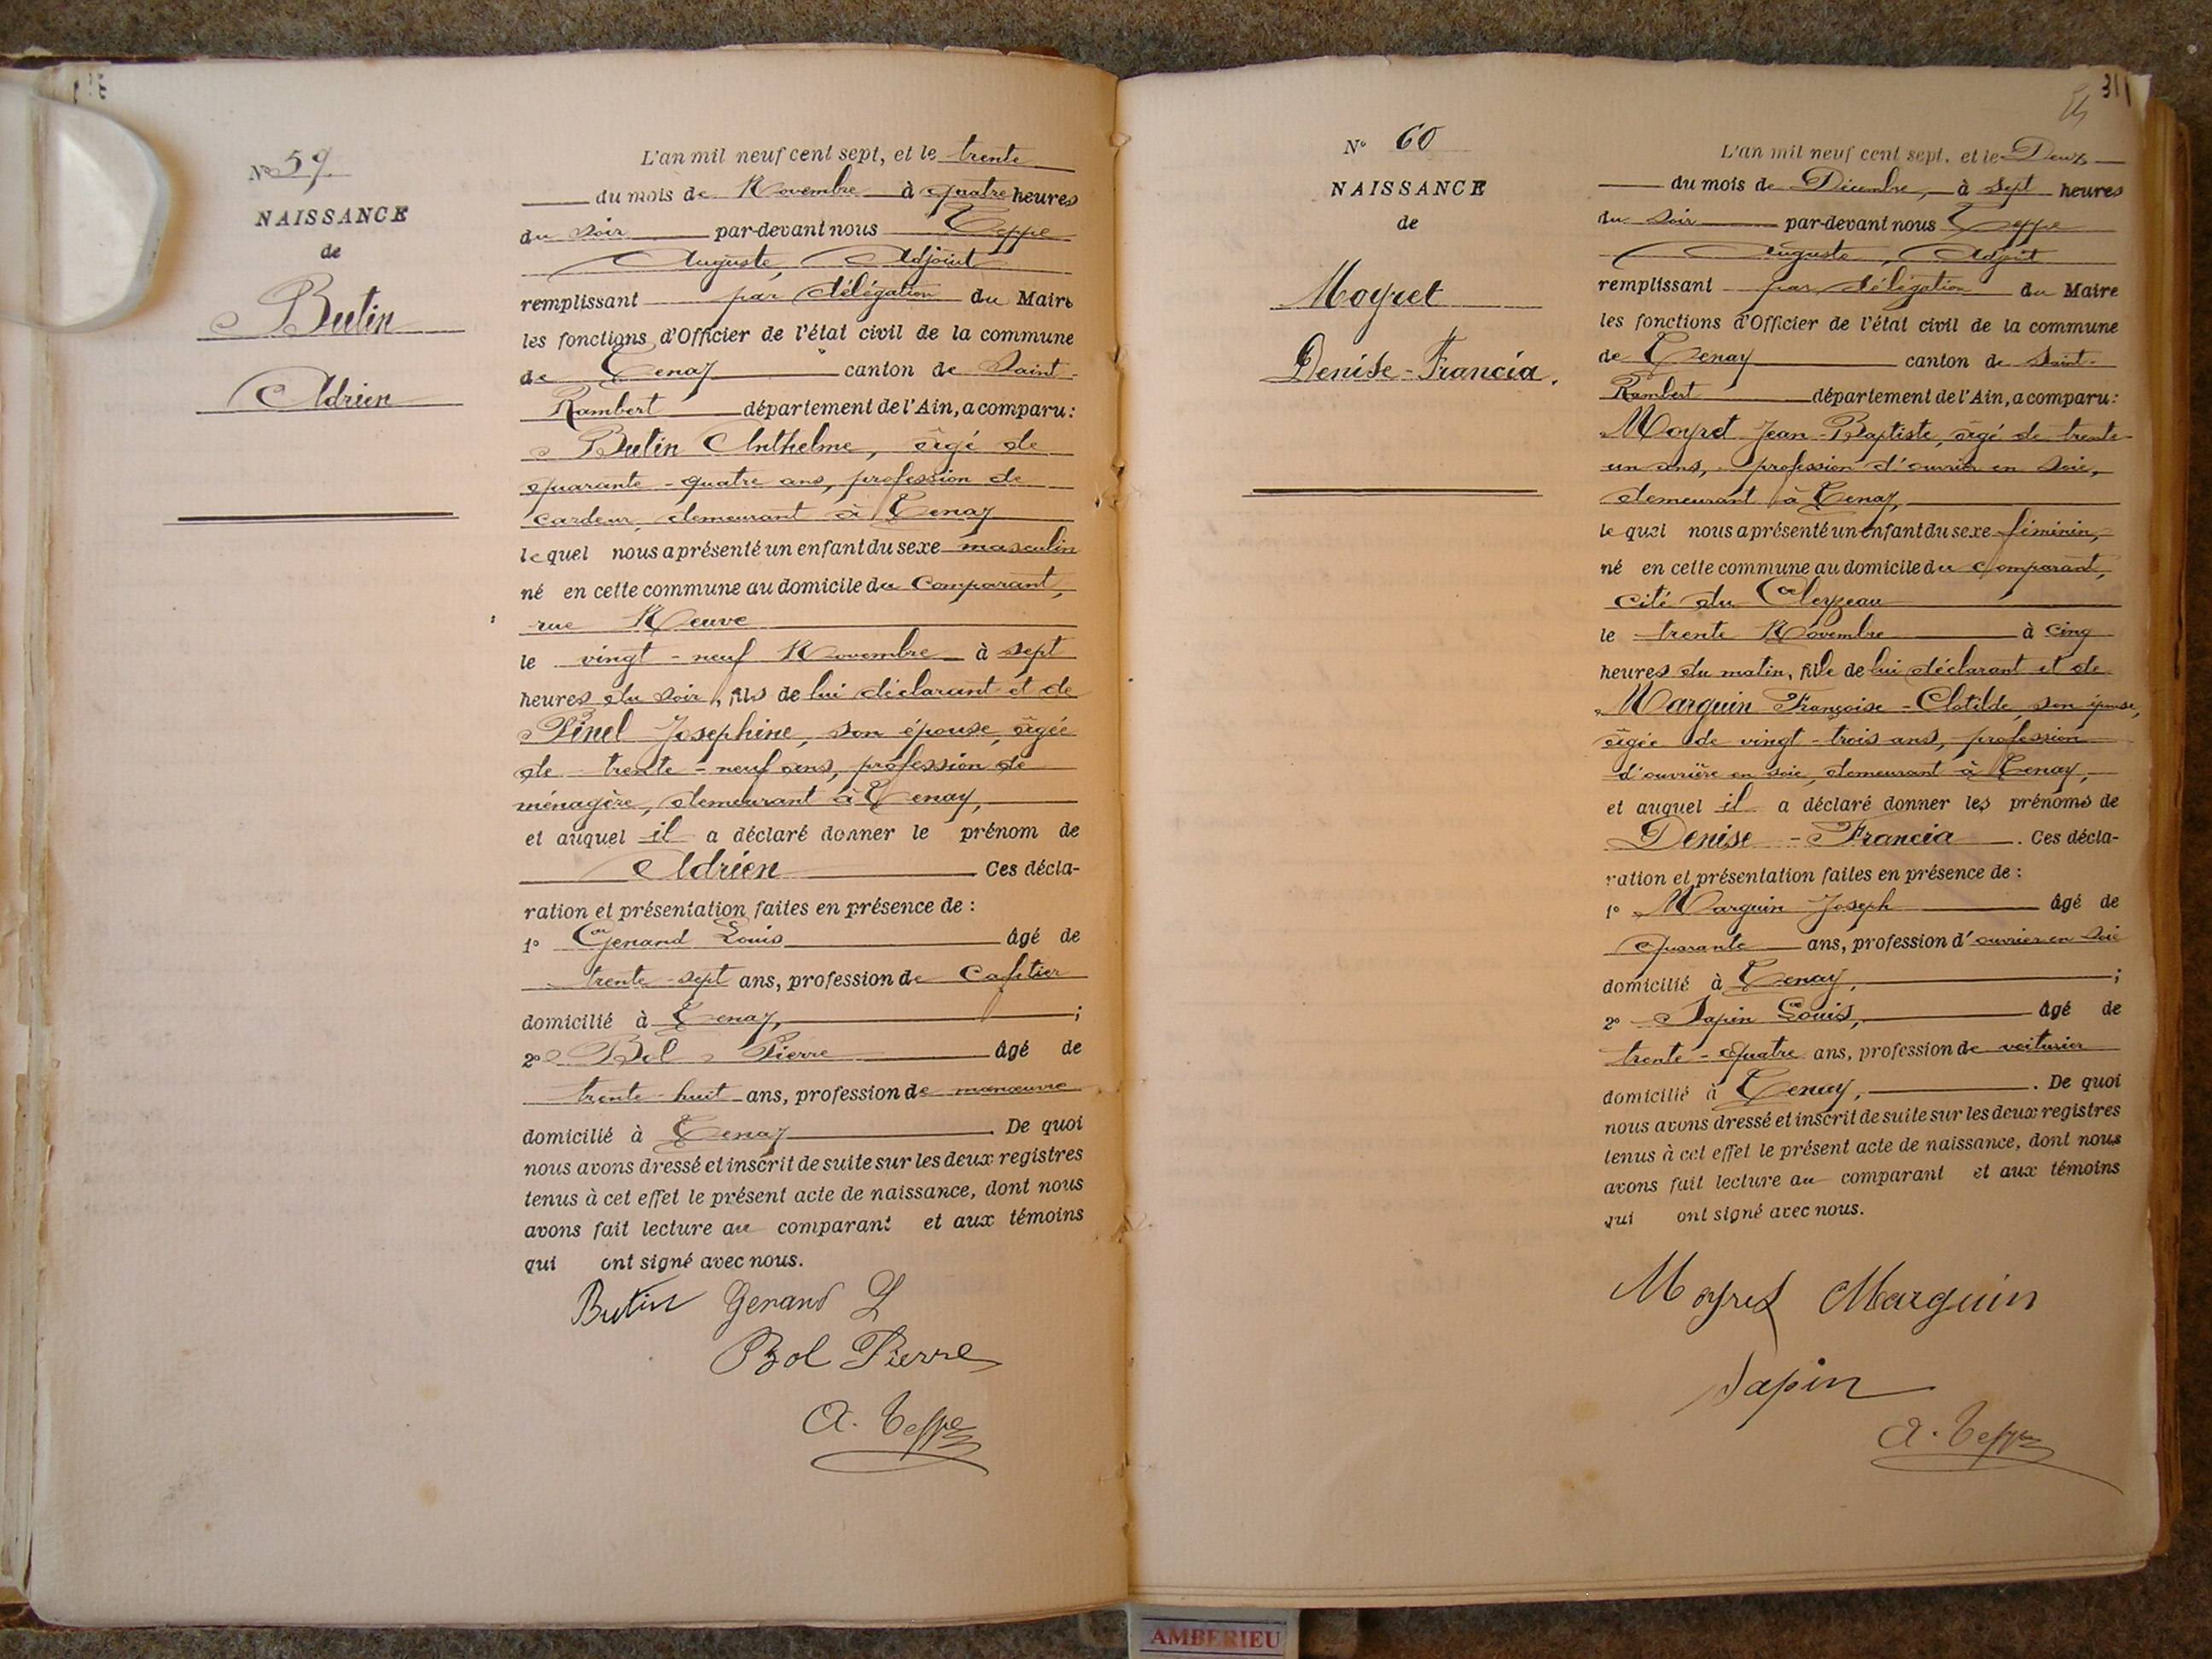 N° 59
NAISSANCE
de
Butin
Adrien
L'an mil neuf cent sept, et le trente
du mois de Novembre à quatre heures
du soir par-devant nous Teppe
Auguste, Adjoint
remplissant par délégation du Maire
les fonctions d'Officier de l'état civil de la commune
de Tenay canton de Saint-
Rambert département de l'Ain, a comparu:
Butin Anthelme, âgé de
quarante-quatre ans, profession de
cardeur, demeurant à Tenay
lequel nous a présenté un enfant du sexe masculin
né en cette commune au domicile du Comparant,
rue Neuve
le vingt-neuf Novembre à sept
heures du soir, fils de lui déclarant et de
Pinel Josephine, son épouse, âgée
de trente-neuf ans, profession de
ménagère, demeurant à Tenay,
et auquel il a déclaré donner le prénom de
Adrien Ces décla-
ration et présentation faites en présence de :
1° Genand Louis âgé de
trente-sept ans, profession de Cafetier
domicilié à Tenay, ;
2° Bol Pierre âgé de
trente-huit ans, profession de manœuvre
domicilié à Tenay. De quoi
nous avons dressé et inscrit de suite sur les deux registres
tenus à cet effet le présent acte de naissance, dont nous
avons fait lecture au comparant et aux témoins
qui ont signé avec nous.
Butin Genand L
Bol Pierre
A. Teppe
311
N° 60
NAISSANCE
de
Moyret
Denise-Francia.
L'an mil neuf cent sept, et le Deux
du mois de Décembre, à sept heures
du soir par-devant nous Teppe
Auguste, Adjoint
remplissant par délégation du Maire
les fonctions d'Officier de l'état civil de la commune
de Tenay canton de Saint-
Rambert département de l'Ain, a comparu:
Moyret Jean-Baptiste, âgé de trente-
un ans, profession d'ouvrier en soie,
demeurant à Tenay,
lequel nous a présenté un enfant du sexe féminin,
né en cette commune au domicile du Comparant,
cité du Cleyzeau
le trente Novembre à cinq
heures du matin, fille de lui déclarant et de
Marguin Françoise-Clotilde, son épouse,
âgée de vingt-trois ans, profession
d'ouvrière en soie, demeurant à Tenay,
et auquel il a déclaré donner les prénoms de
Denise-Francia. Ces décla-
ration et présentation faites en présence de :
1° Marguin Joseph âgé de
Quarante ans, profession d'ouvrier en soie
domicilié à Tenay, ;
2° Sapin Louis, âgé de
trente-quatre ans, profession de voiturier
domicilié à Tenay, . De quoi
nous avons dressé et inscrit de suite sur les deux registres
tenus à cet effet le présent acte de naissance, dont nous
avons fait lecture au comparant et aux témoins
qui ont signé avec nous.
Moyret Marguin
Sapin
A. Teppe
AMBERIEU